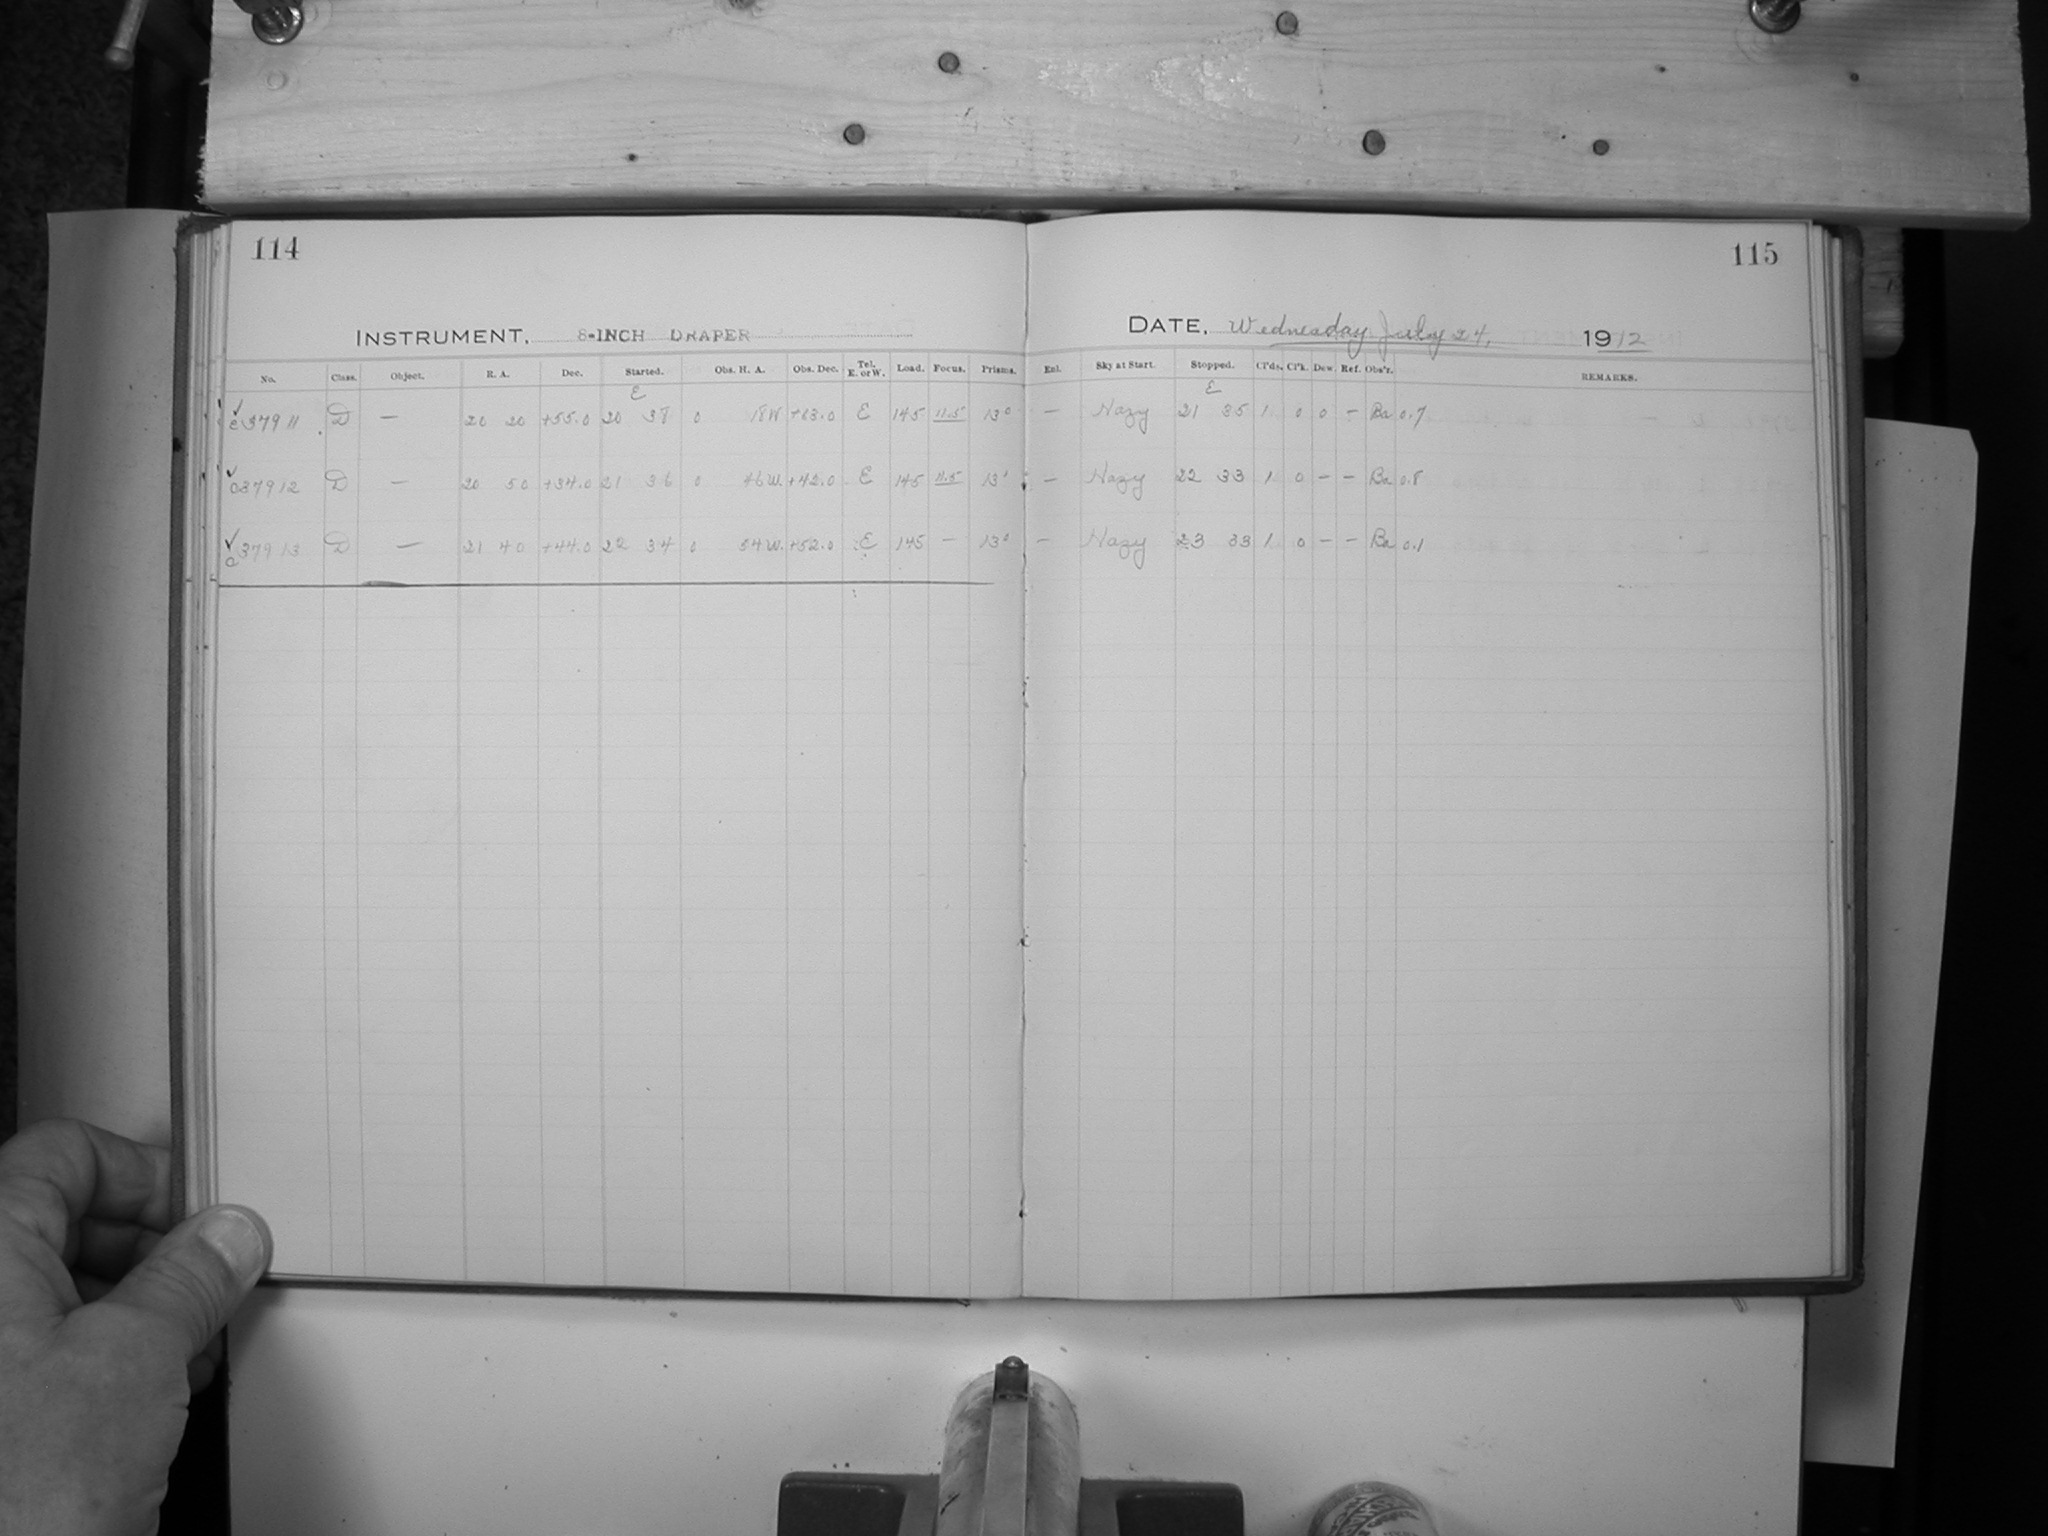 114
INSTRUMENT, 8-INCH DRAPER
No. Class. Object. R. A. Dec. Started. Obs. H. A. Obs. Dec. Tel. E. or W. Load. Focus. Prisms.
E
c37911 D — 20 20 +55.0 20 38 0 18W +63.0 E 145 11.5 13°
c37912 D — 20 50 +34.0 21 36 0 46W. +42.0 E 145 11.5 13°
c37913 D — 21 40 +44.0 22 34 0 54W. +52.0 E 145 — 13°
115
DATE, Wednesday July 24, 1912
Enl. Sky at Start. Stopped. Cl'ds. Cl'k. Dew. Ref. Obs'r. REMARKS.
E
— Hazy 21 35 1 0 0 – Ba 0.7
— Hazy 22 33 1 0 – – Ba 0.8
— Hazy 23 33 1 0 – – Ba 0.1